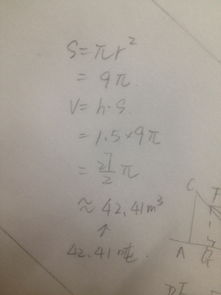 S=πr²
=9π.
V=h·S.
=1.5×9π
=27/2 π
≈42.41m³
↑
42.41吨.
C
A